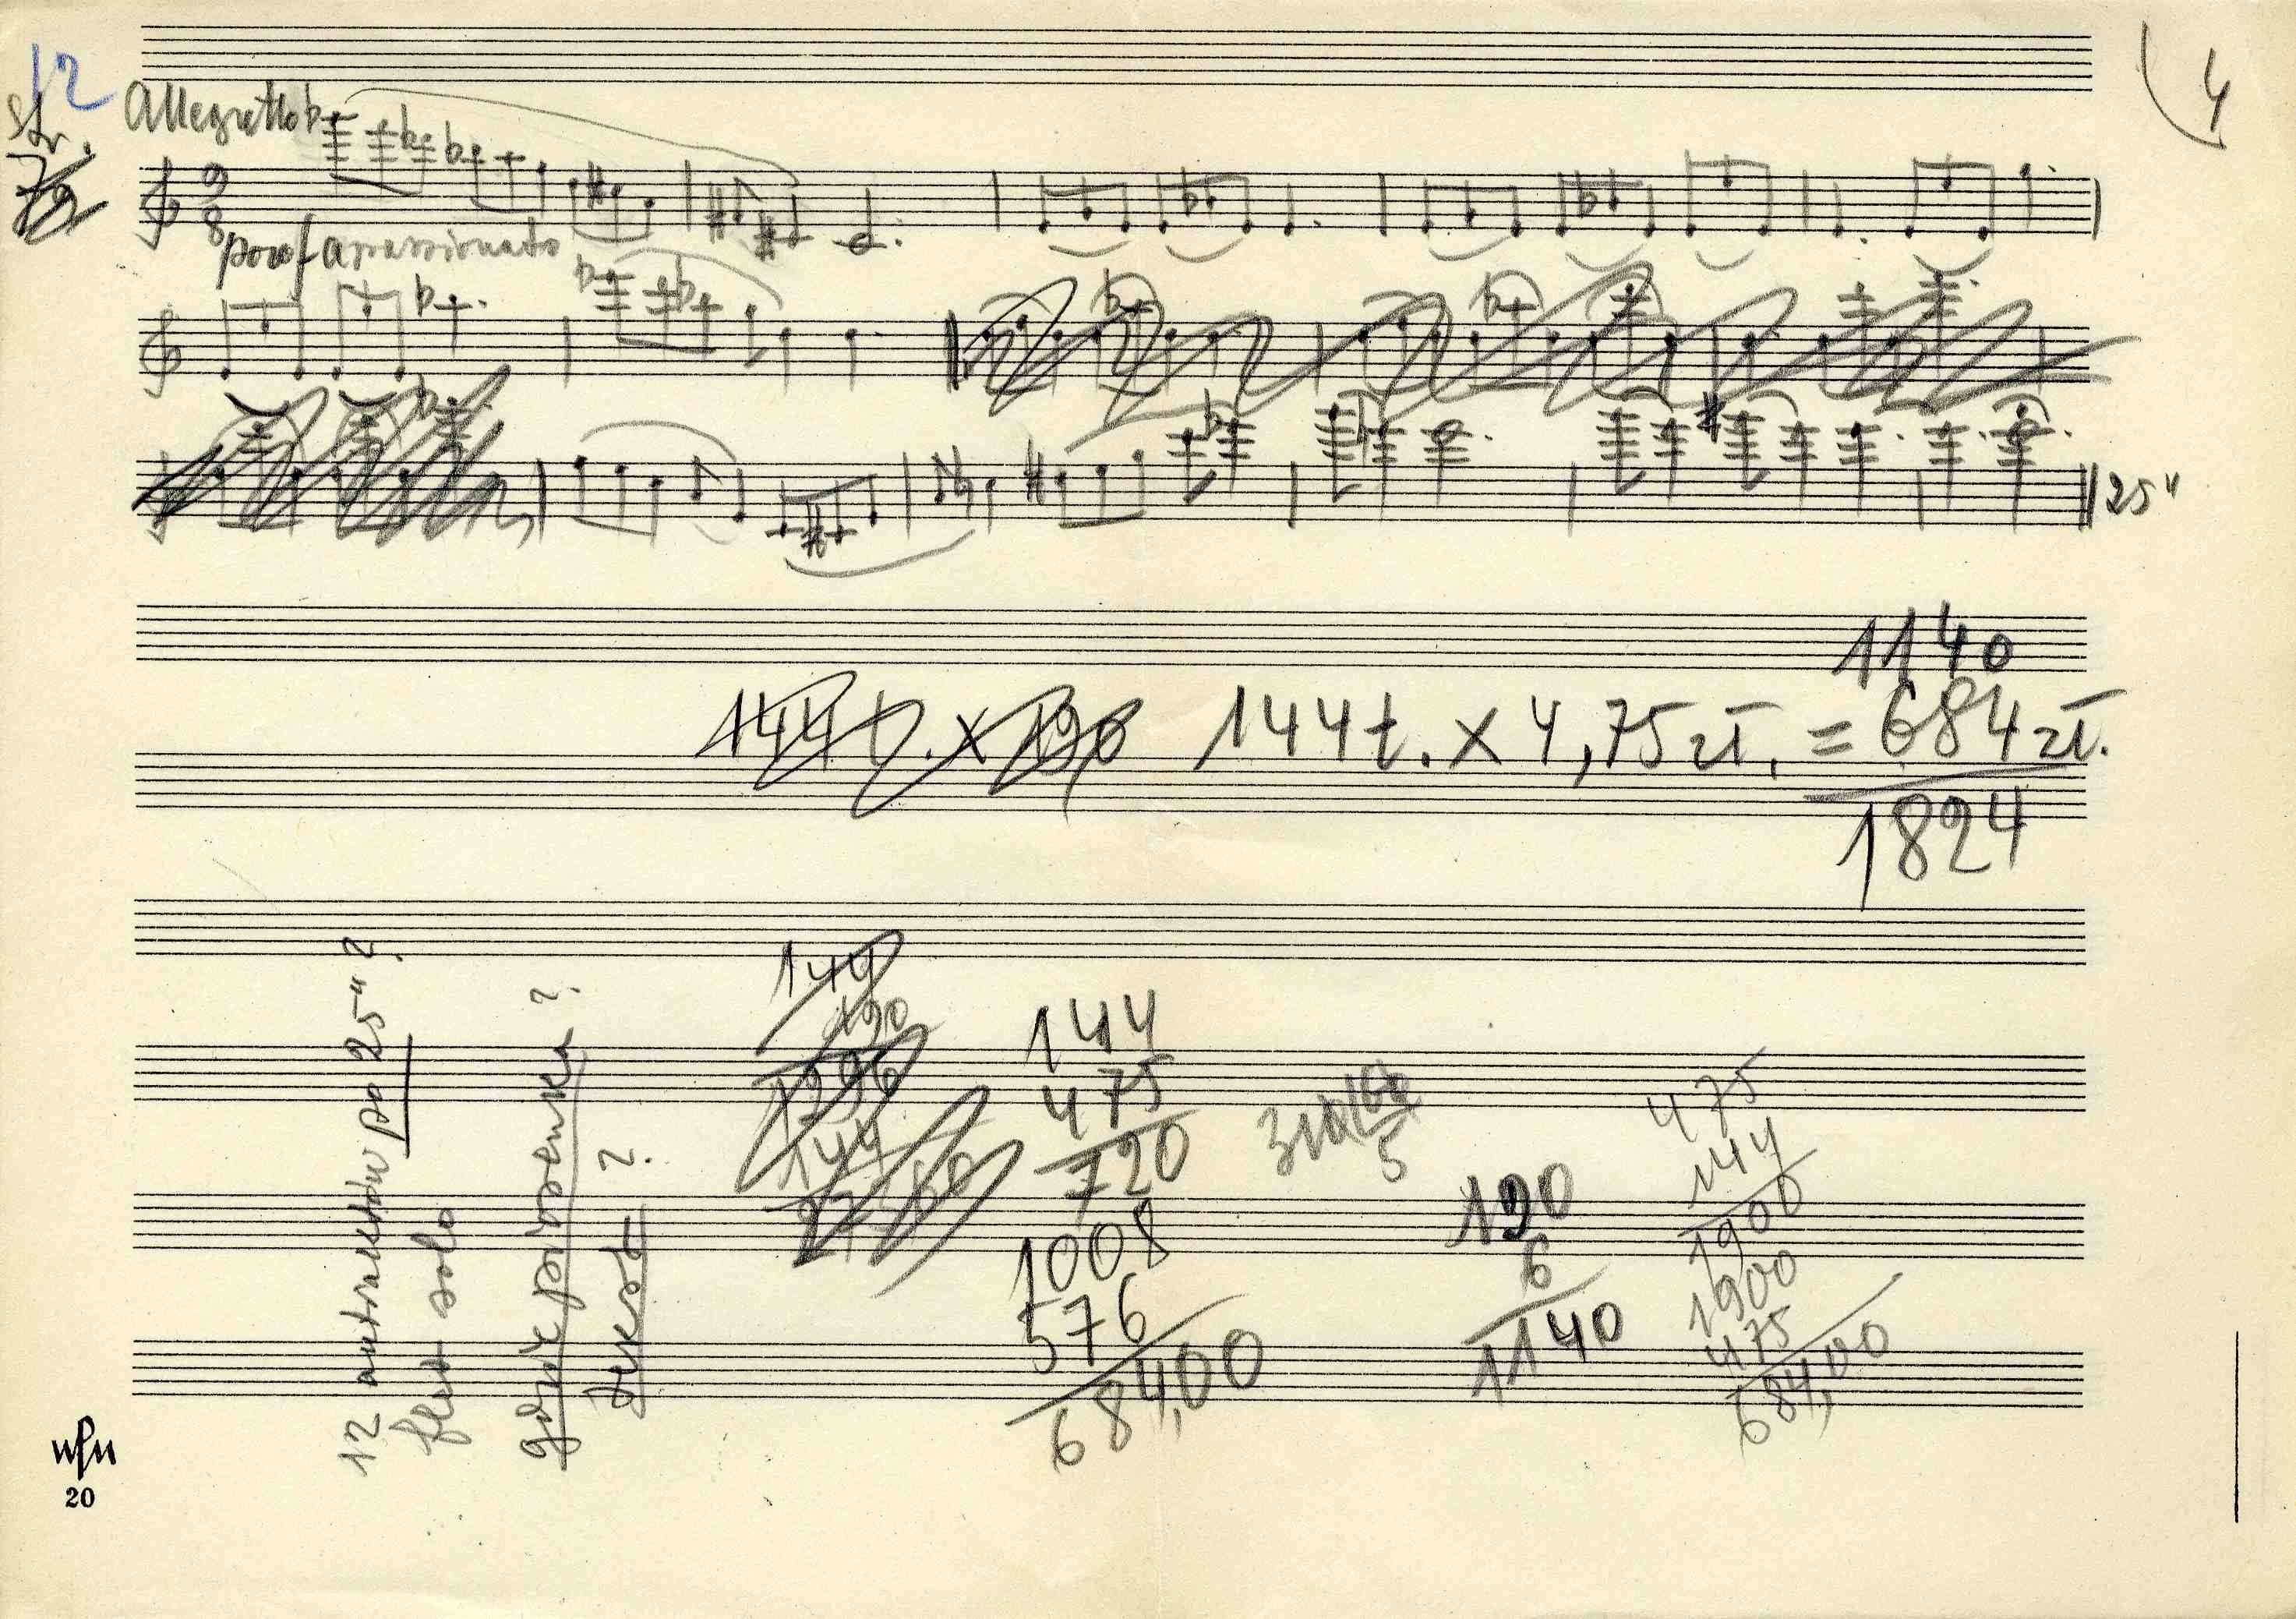 12
4
str.
Allegretto
9
8
poco f appassionato
25"
1140
144 t. x 190 144 t. x 4,75 zł. = 684 zł.
1824
12 antraktów po 25" ?
flet solo
gdzie piosenka ?
tekst ?
144
190
1296
144
27360
144
475
720
1008
576
684,00
5
190
6
1140
475
144
1900
1900
475
684,00
20